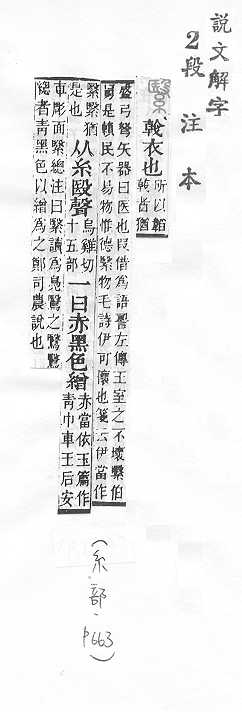 說文解字
2段注本
繄
戟衣也
所以韜
戟者猶
盛弓弩矢器曰医也叚借爲語䛐左傳王室之不壞繄伯
舅是賴民不易物惟德繄物毛詩伊可懷也箋云伊當作
繄繄猶
是也
从糸殹聲
烏雞切
十五部
一曰赤黑色繒
赤當依玉篇作
青巾車王后安
車彫面繄總注曰繄讀爲鳧鷖之鷖鷖
總者青黑色以繒爲之鄭司農說也
(糸.部.P663)